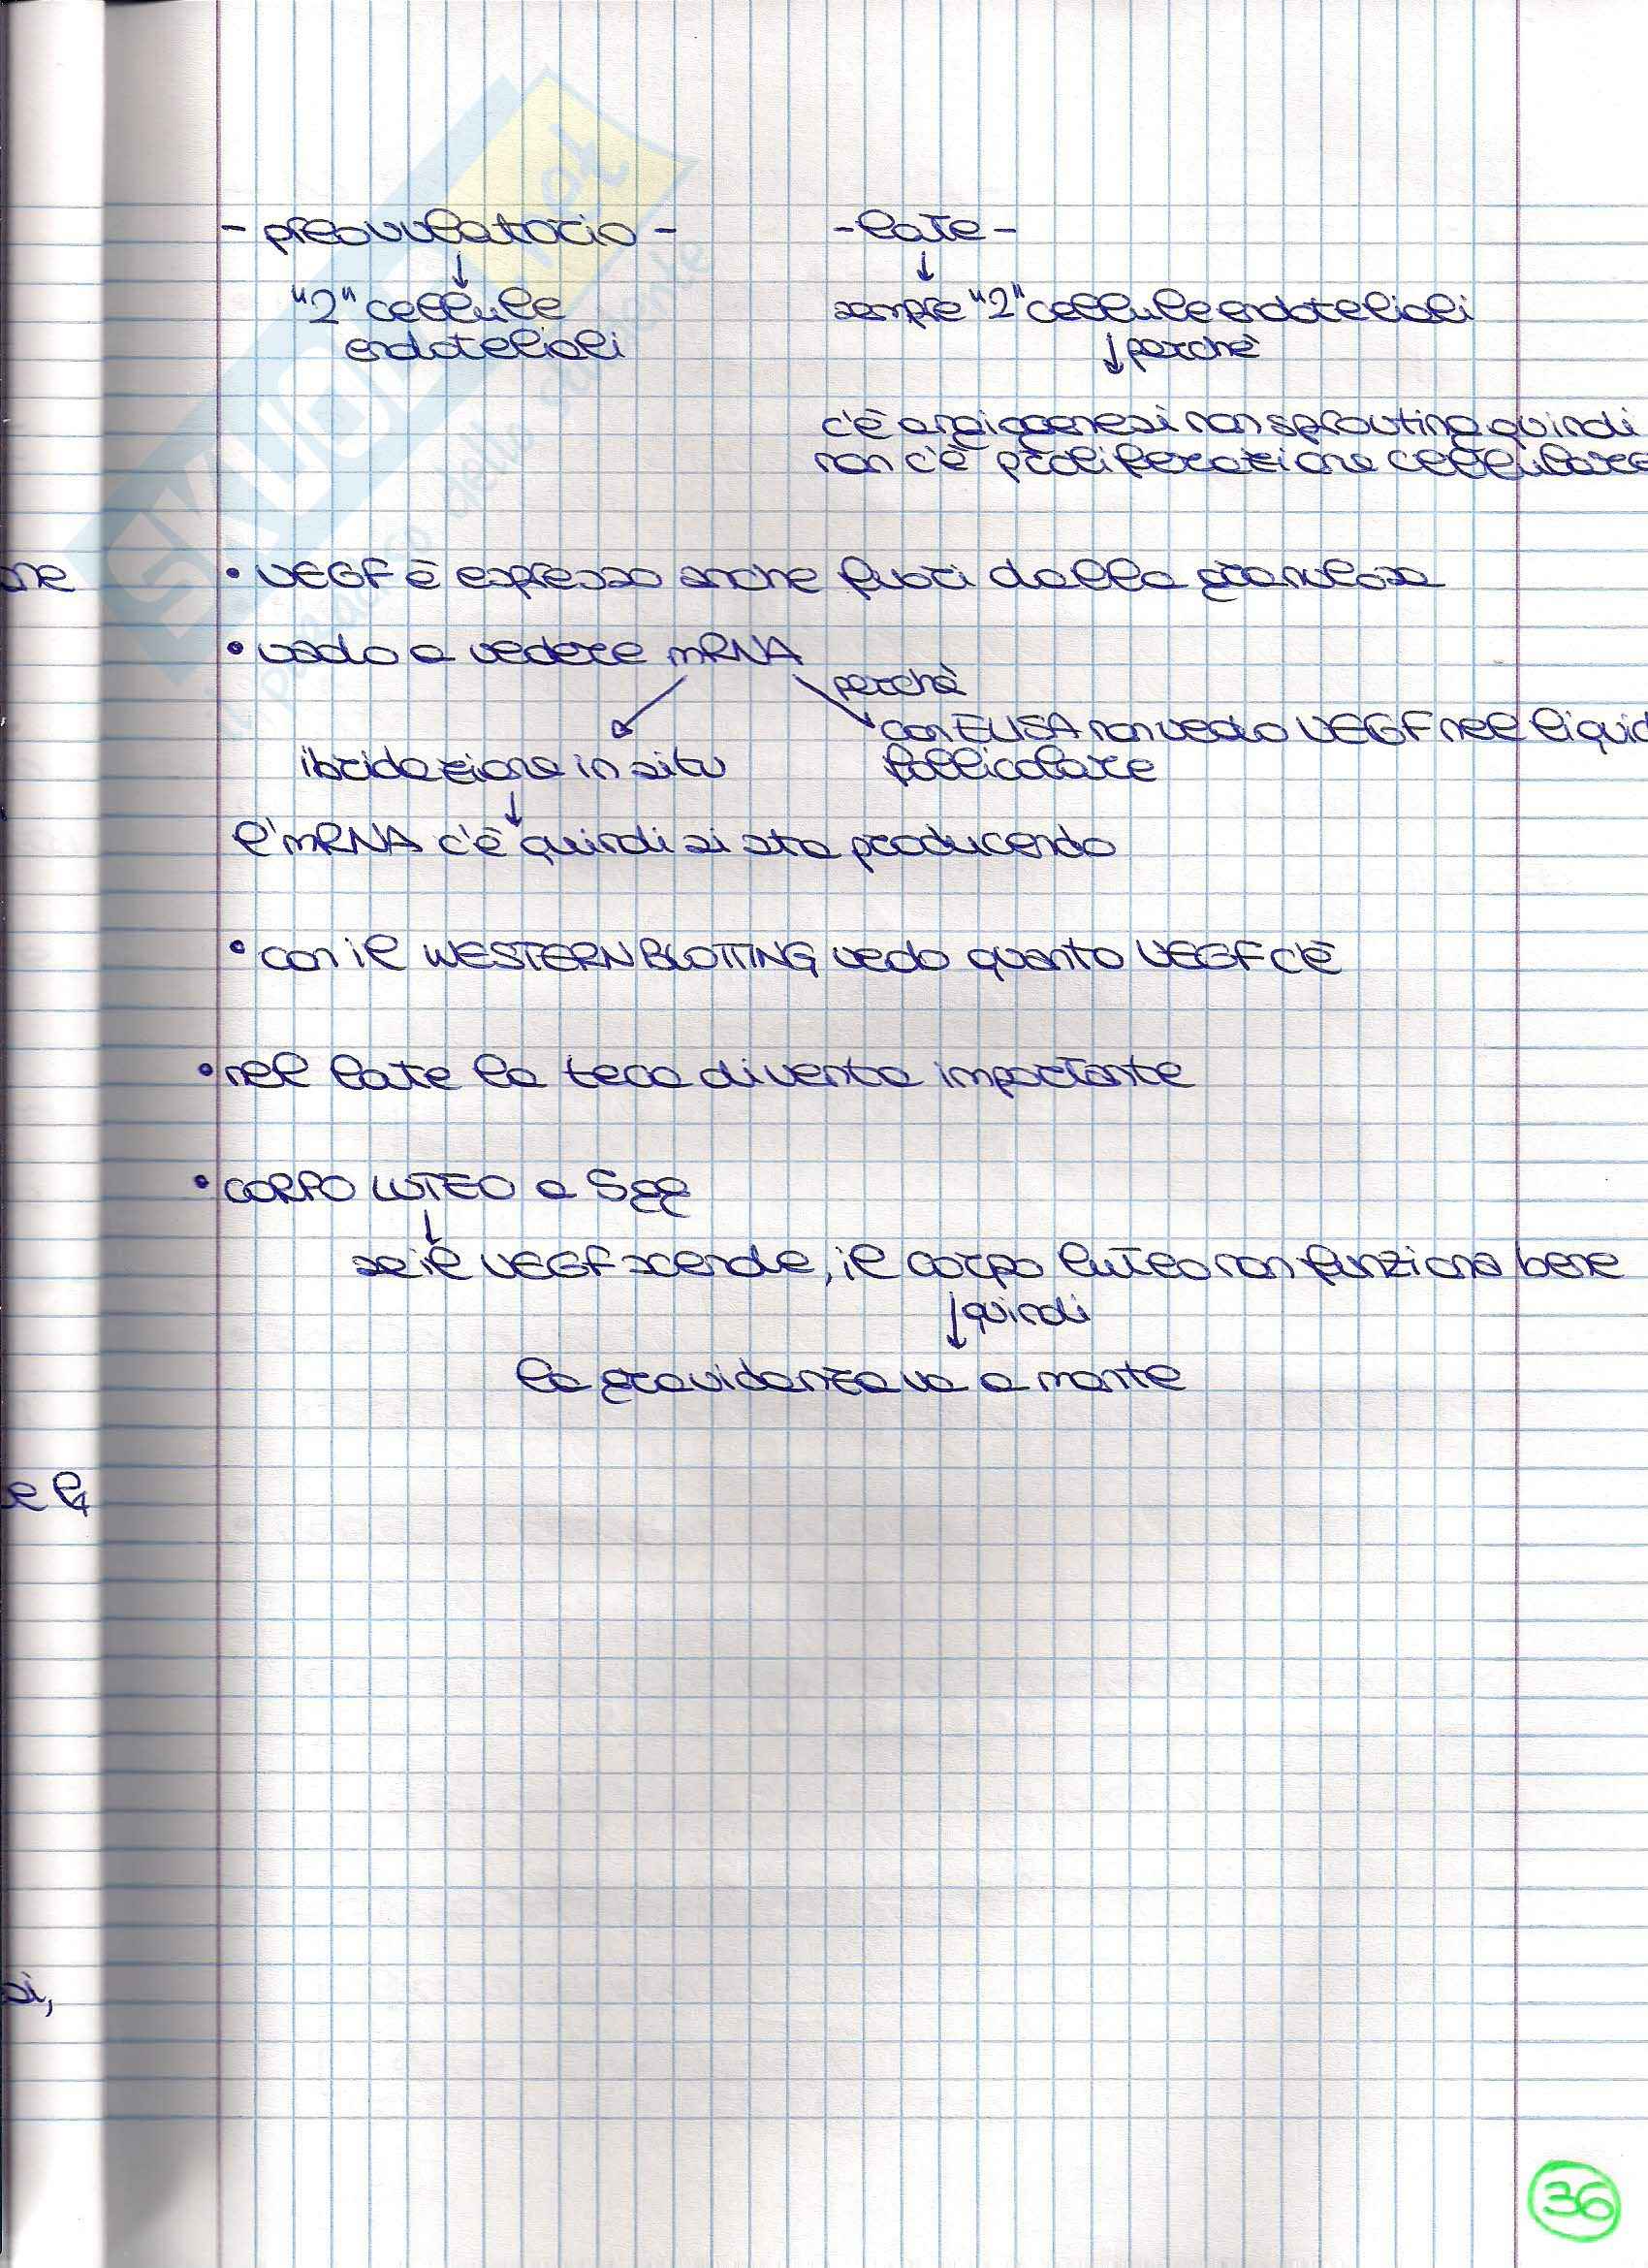 - preovulatorio -
- late -
"2" cellule
endoteliali
sempre "2" cellule endoteliali
perchè
c'è angiogenesi non sprouting quindi
non c'è proliferazione cellulare
one
• VEGF è espresso anche fuori dalla granulosa
• vado a vedere mRNA
perchè
con ELISA non vedo VEGF nel liquid
follicolare
ibridazione in situ
l'mRNA c'è quindi si sta producendo
• con il WESTERN BLOTTING vedo quanto VEGF c'è
• nel late la teca diventa importante
• CORPO LUTEO a 5gg
se il VEGF scende, il corpo luteo non funziona bene
quindi
la gravidanza va a monte
si,
36
SKUOLA.net
il paradiso dello studente